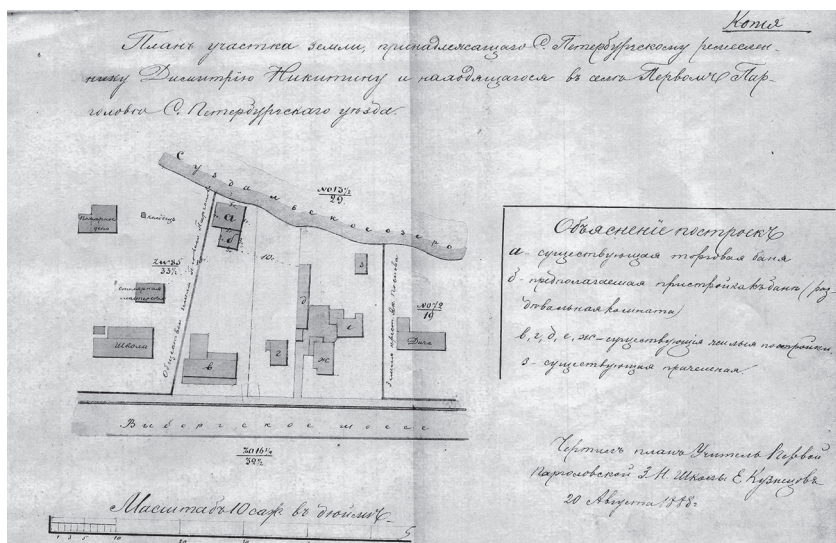 Копія
Планъ участка земли, принадлежащаго С. Петербургскому ремеслен-
нику Димитрію Никитину и находящагося въ селѣ Первомъ Пар-
голово С. Петербургскаго уѣзда.
Суздальское озеро
№13½
29
Пожарное
депо
колодецъ
а
б
10.
№35
33½
столярная
мастерская
Школа
Общественная земля
в
г
д
е
ж
з
Земля крестьян.
№12
19
Дача
Выборгское шоссе
№16½
32½
Масштабъ 10 саж въ дюймѣ.
1 3 5 10
Объясненіе построекъ
а - существующая торговая баня
б - предполагаемая пристройка къ банѣ (раз-
дѣвальная комната)
в, г, д, е, ж - существующія жилыя постройки.
з - существующая прачешная.
Чертилъ планъ Учитель Первой
Парголовской З. Н. Школы Е. Кузнецовъ
20 Августа 1888 г.